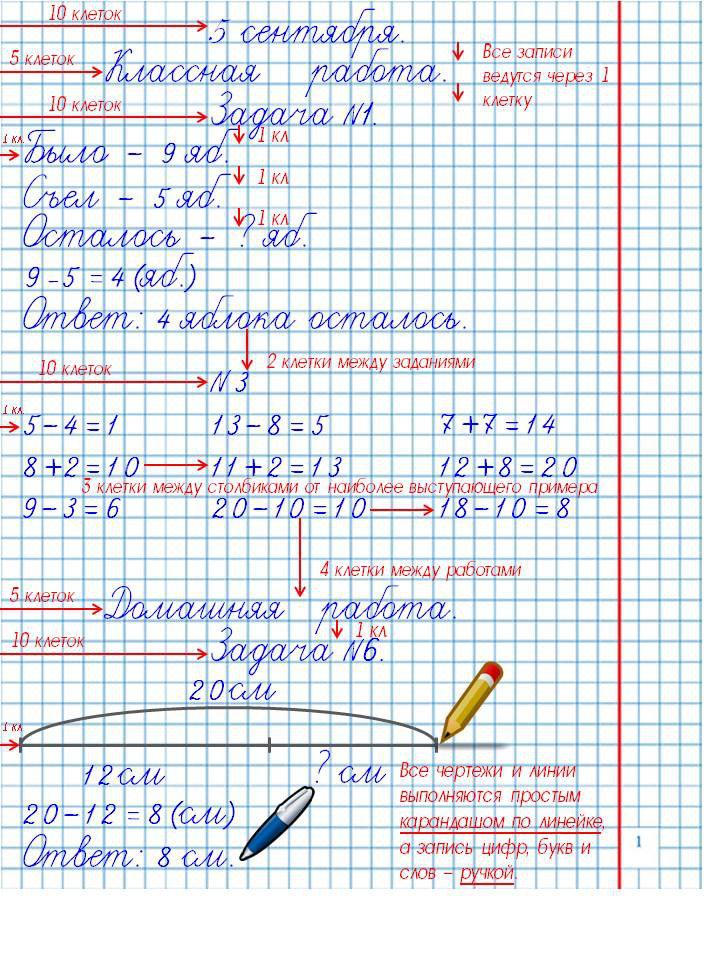 10 клеток
5 сентября.
5 клеток
Классная работа.
Все записи
ведутся через 1
клетку
10 клеток
Задача N1.
1 кл.
1 кл
Было - 9 яб.
1 кл
Съел - 5 яб.
1 кл
Осталось - ? яб.
9-5 = 4 (яб.)
Ответ: 4 яблока осталось.
2 клетки между заданиями
10 клеток
N 3
1 кл.
5-4=1 13-8=5 7+7=14
8+2=10 11+2=13 12+8=20
3 клетки между столбиками от наиболее выступающего примера
9-3=6 20-10=10 18-10=8
4 клетки между работами
5 клеток
Домашняя работа.
1 кл
10 клеток
Задача N6.
20 см
1 кл.
12 см ? см
20-12 = 8 (см)
Ответ: 8 см.
Все чертежи и линии
выполняются простым
карандашом по линейке,
а запись цифр, букв и
слов - ручкой.
1